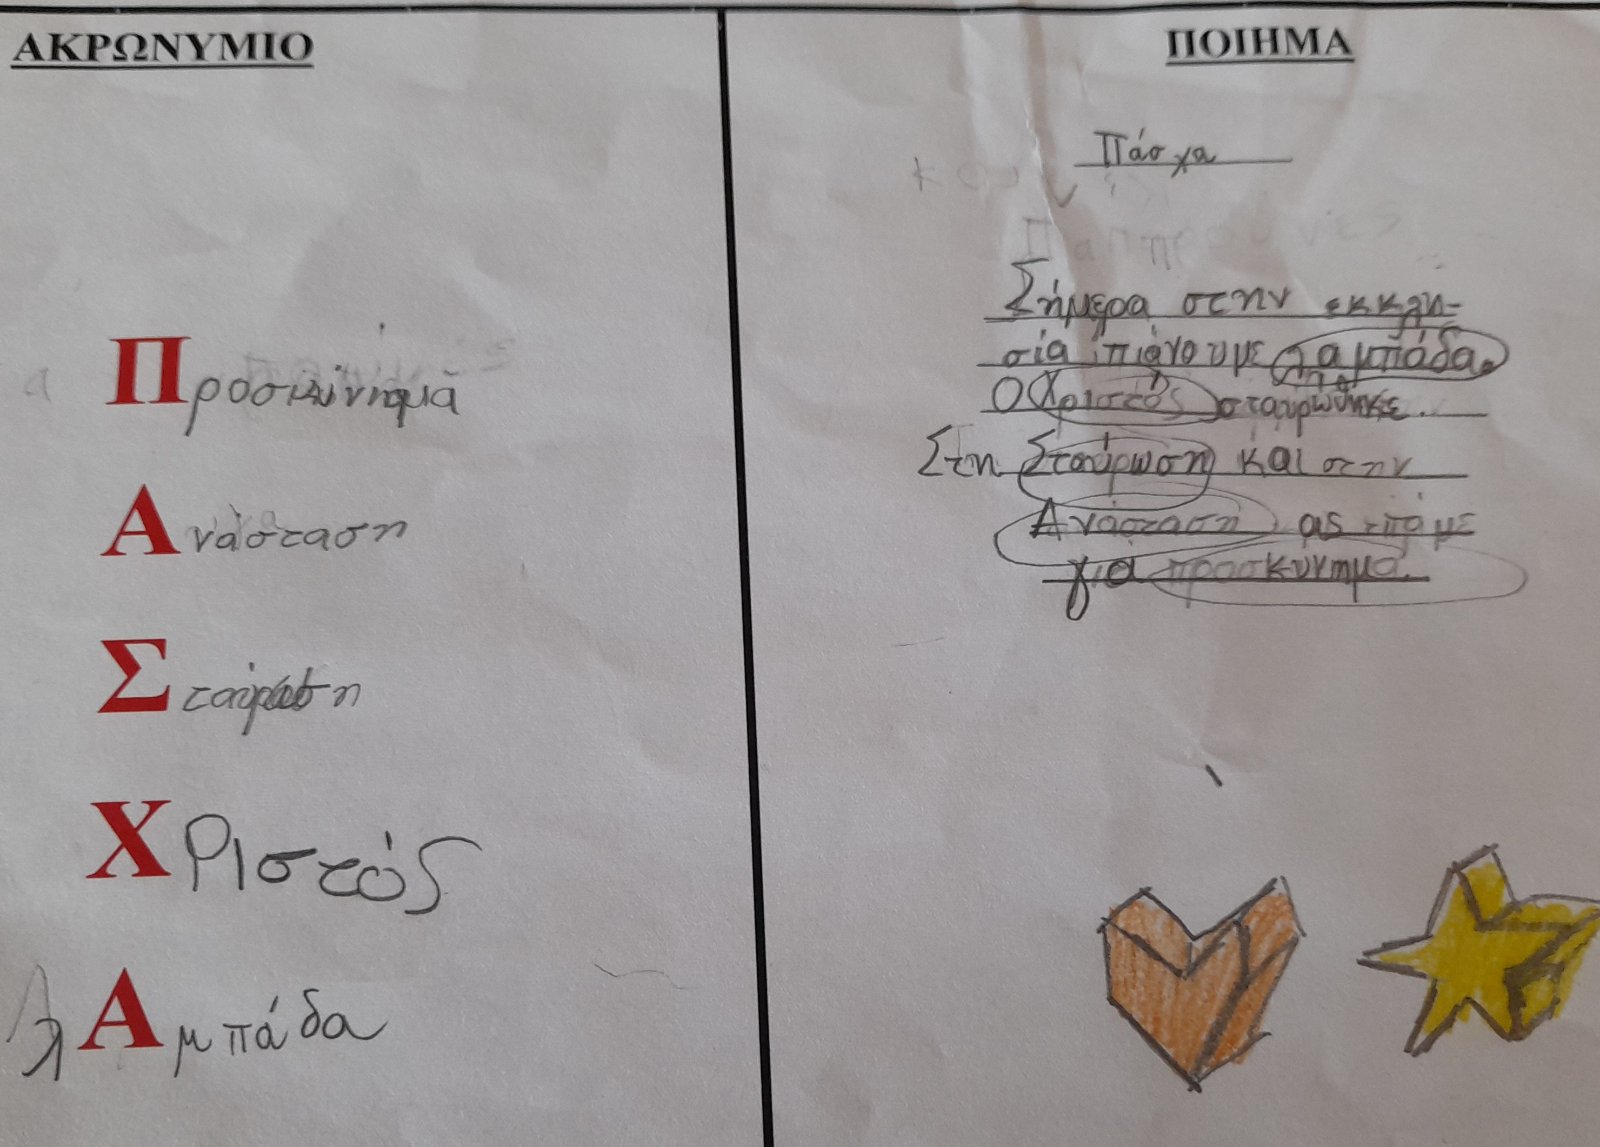 ΑΚΡΩΝΥΜΙΟ
Προσκύνημα
Ανάσταση
Σταύρωση
Χριστός
λΑμπάδα
ΠΟΙΗΜΑ
Πάσχα
Σήμερα στην εκκλη-
σία πιάνουμε λαμπάδα.
Ο Χριστός σταυρώθηκε.
Στη Σταύρωση και στην
Ανάσταση ας πάμε
για προσκύνημα.